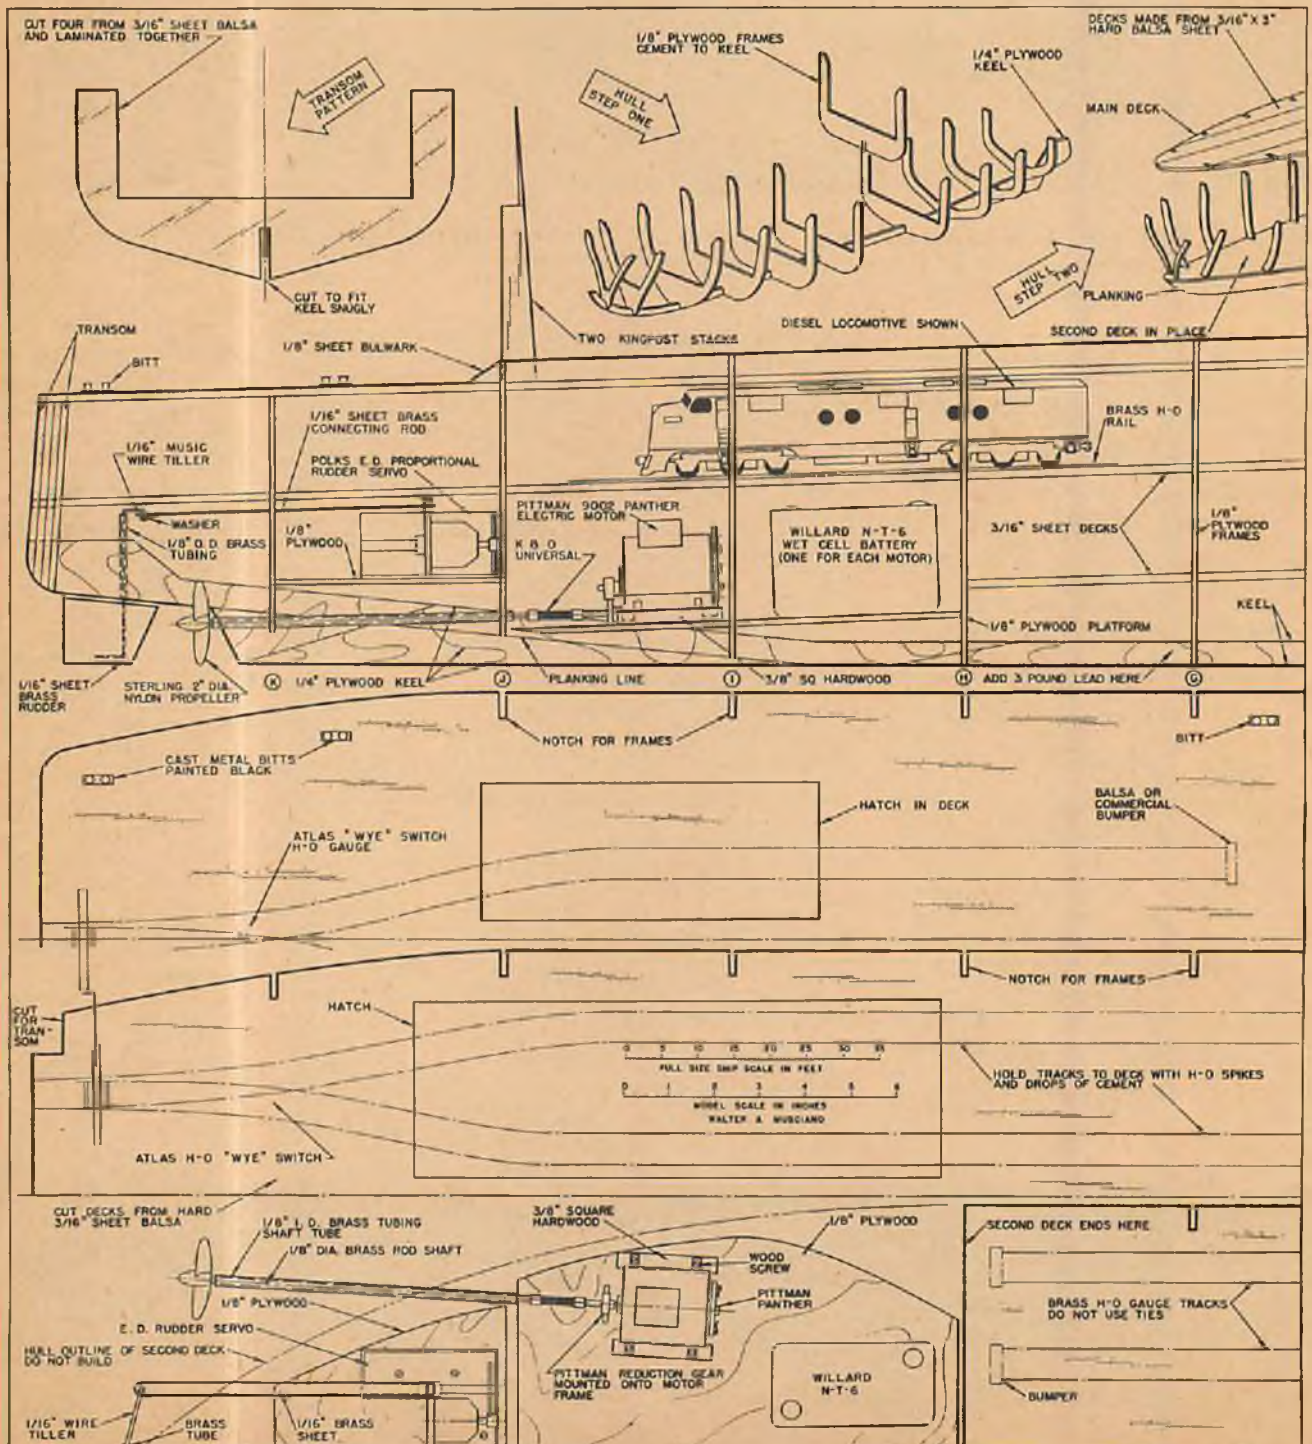 CUT FOUR FROM 3/16" SHEET BALSA
AND LAMINATED TOGETHER
TRANSOM
PATTERN
HULL
STEP ONE
1/8" PLYWOOD FRAMES
CEMENT TO KEEL
1/4" PLYWOOD
KEEL
DECKS MADE FROM 3/16" X 3"
HARD BALSA SHEET
MAIN DECK
CUT TO FIT
KEEL SNUGLY
HULL
STEP TWO
PLANKING
SECOND DECK IN PLACE
TRANSOM
BITT
1/8" SHEET BULWARK
TWO KINGPOST STACKS
DIESEL LOCOMOTIVE SHOWN
1/16" SHEET BRASS
CONNECTING ROD
BRASS H-O
RAIL
1/16" MUSIC
WIRE TILLER
POLKS E.D. PROPORTIONAL
RUDDER SERVO
WASHER
1/8" O.D. BRASS
TUBING
1/8"
PLYWOOD
PITTMAN 9002 PANTHER
ELECTRIC MOTOR
K B O
UNIVERSAL
WILLARD N-T-6
WET CELL BATTERY
(ONE FOR EACH MOTOR)
3/16" SHEET DECKS
1/8"
PLYWOOD
FRAMES
KEEL
1/8" PLYWOOD PLATFORM
1/16" SHEET
BRASS
RUDDER
STERLING 2" DIA.
NYLON PROPELLER
K
1/4" PLYWOOD KEEL
J
PLANKING LINE
I
3/8" SQ HARDWOOD
H
ADD 3 POUND LEAD HERE
G
NOTCH FOR FRAMES
BITT
CAST METAL BITTS
PAINTED BLACK
HATCH IN DECK
BALSA OR
COMMERCIAL
BUMPER
ATLAS "WYE" SWITCH
H-O GAUGE
NOTCH FOR FRAMES
CUT
FOR
TRAN-
SOM
HATCH
0 5 10 15 20 25 30 35
FULL SIZE SHIP SCALE IN FEET
0 1 2 3 4 5 6
MODEL SCALE IN INCHES
WALTER A MUSCIANO
HOLD TRACKS TO DECK WITH H-O SPIKES
AND DROPS OF CEMENT
ATLAS H-O "WYE" SWITCH
CUT DECKS FROM HARD
3/16" SHEET BALSA
1/8" I.D. BRASS TUBING
SHAFT TUBE
1/8" DIA. BRASS ROD SHAFT
1/8" PLYWOOD
3/8" SQUARE
HARDWOOD
1/8" PLYWOOD
WOOD
SCREW
PITTMAN
PANTHER
SECOND DECK ENDS HERE
BRASS H-O GAUGE TRACKS
DO NOT USE TIES
E.D. RUDDER SERVO
HULL OUTLINE OF SECOND DECK
DO NOT BUILD
PITTMAN REDUCTION GEAR
MOUNTED ONTO MOTOR
FRAME
WILLARD
N-T-6
BUMPER
1/16" WIRE
TILLER
BRASS
TUBE
1/16" BRASS
SHEET